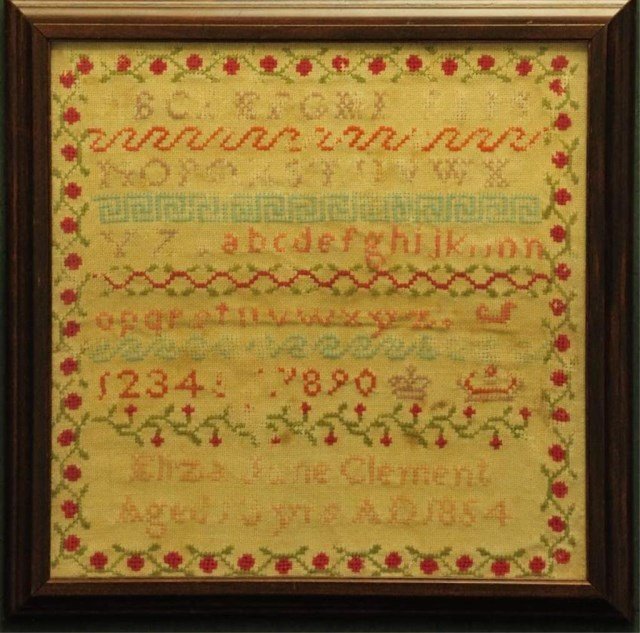 B C E F G H I
N O P Q S T U V W X
Y Z a b c d e f g h i j k m n
o p q r s t u v w x y z
1 2 3 4 7 8 9 0
Eliza Jane Clement
Aged yrs A.D 1854